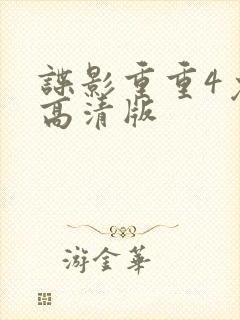 諜影重重4
高清版
游金華